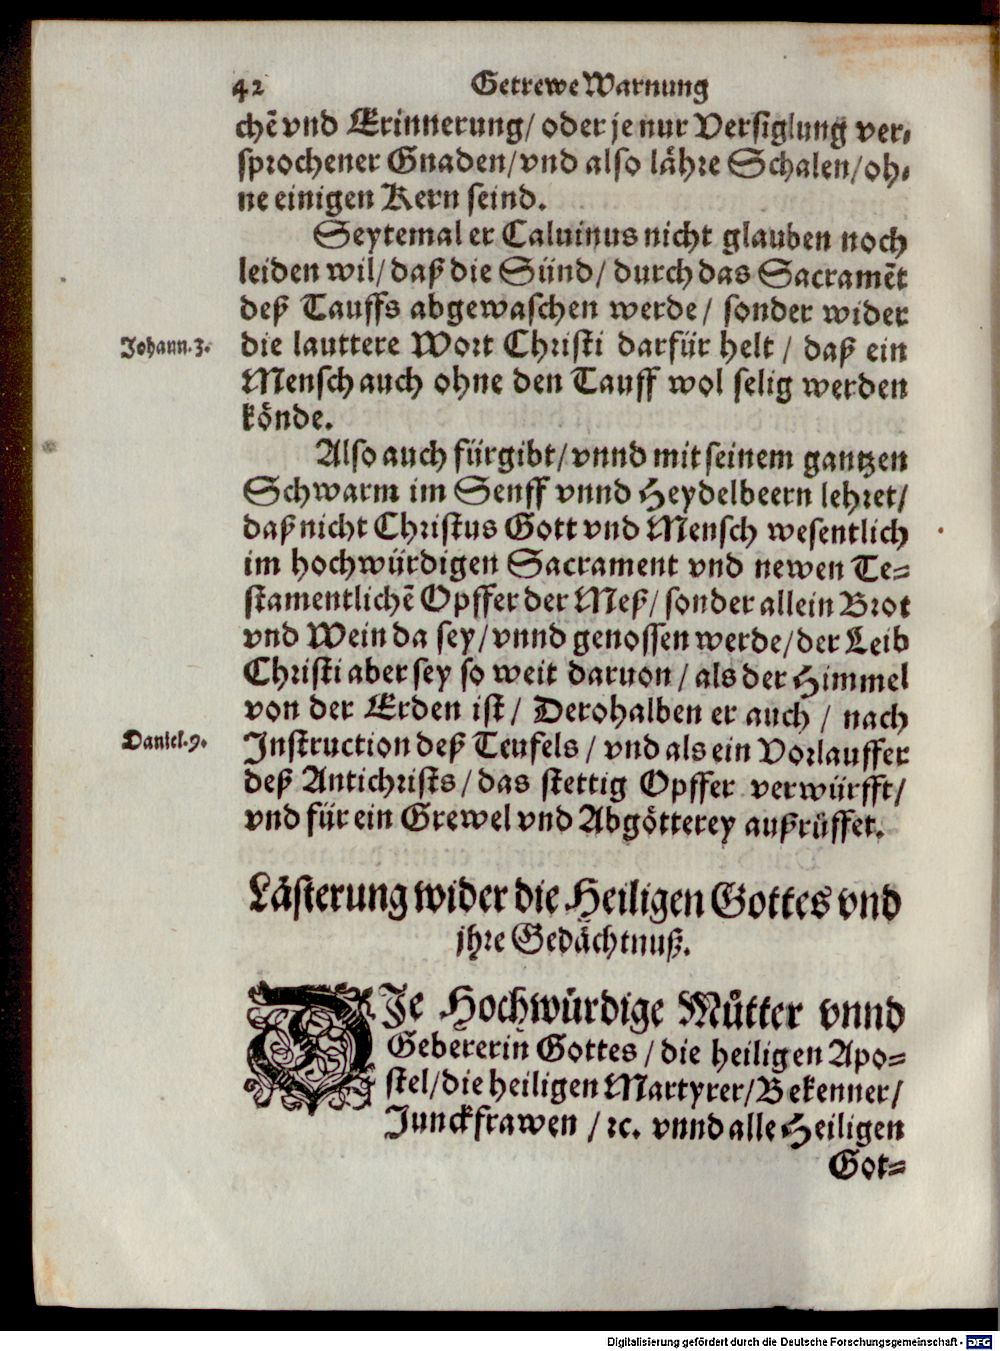 42 Getrewe Warnung
chẽ vnd Erinnerung/ oder je nur Versiglung ver⸗
sprochener Gnaden/ vnd also lähre Schalen/ oh⸗
ne einigen Kern seind.
Seytemal er Caluinus nicht glauben noch
leiden wil/ daß die Sünd/ durch das Sacramẽt
deß Tauffs abgewaschen werde/ sonder wider
Johann. 3. die lauttere Wort Christi darfür helt/ daß ein
Mensch auch ohne den Tauff wol selig werden
könde.
Also auch fürgibt/ vnnd mit seinem gantzen
Schwarm im Senff vnnd Heydelbeern lehret/
daß nicht Christus Gott vnd Mensch wesentlich
im hochwürdigen Sacrament vnd newen Te⸗
stamentlichẽ Opffer der Meß/ sonder allein Brot
vnd Wein da sey/ vnnd genossen werde/ der Leib
Christi aber sey so weit daruon/ als der Himmel
von der Erden ist/ Derohalben er auch/ nach
Daniel. 9. Instruction deß Teufels/ vnd als ein Vorlauffer
deß Antichrists/ das stettig Opffer verwürfft/
vnd für ein Grewel vnd Abgötterey außrüffet.
Lästerung wider die Heiligen Gottes vnd
jhre Gedächtnuß.
DIe Hochwürdige Můtter vnnd
Gebererin Gottes/ die heiligen Apo⸗
stel/ die heiligen Martyrer/ Bekenner/
Junckfrawen/ ꝛc. vnnd alle Heiligen
Got⸗
Digitalisierung gefördert durch die Deutsche Forschungsgemeinschaft - DFG